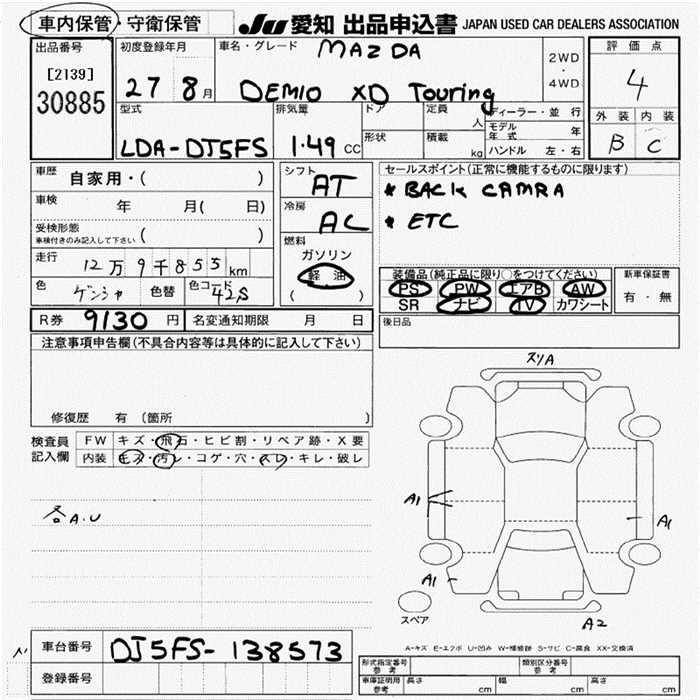 車内保管・守衛保管
JU 愛知 出品申込書 JAPAN USED CAR DEALERS ASSOCIATION
出品番号
[2139]
30885
初度登録年月
27 8 月
車名・グレード
MAZDA
DEMIO XD Touring
2WD
・
4WD
評価点
4
外装 内装
B C
型式
LDA-DJ5FS
排気量
1.49 CC
ドア
形状
定員
人
積載
kg
ディーラー・並行
モデル年式 年
ハンドル 左・右
車歴 自家用・( )
車検 年 月( 日)
受検形態
車検付きのみ記入して下さい ( )
走行 12万9千853 km
色 ゲンシャ 色替 色コード 42S
シフト
AT
冷房
AC
燃料
ガソリン
軽油
( )
セールスポイント(正常に機能するものに限ります)
* BACK CAMRA
* ETC
装備品(純正品に限り○をつけてください)
PS PW エアB AW
SR ナビ TV カワシート
新車保証書
有・無
後日品
R券 9130 円 名変通知期限 月 日
注意事項申告欄(不具合内容等は具体的に記入して下さい)
修復歴 有 (箇所 )
検査員
記入欄
FW キズ・飛石・ヒビ割・リペア跡・X要
内装 キズ・汚レ・コゲ・穴・スレ・キレ・破レ
各A.U
スリA
A1
A1
A1
A2
スペア
A-キズ E-エクボ U-凹み W-補修跡 S-サビ C-腐食 XX-交換済
車台番号 DJ5FS-138573
登録番号
形式指定番号
参考
類別区分番号
参考
車庫証明用
参考
長さ cm 幅 cm 高さ cm